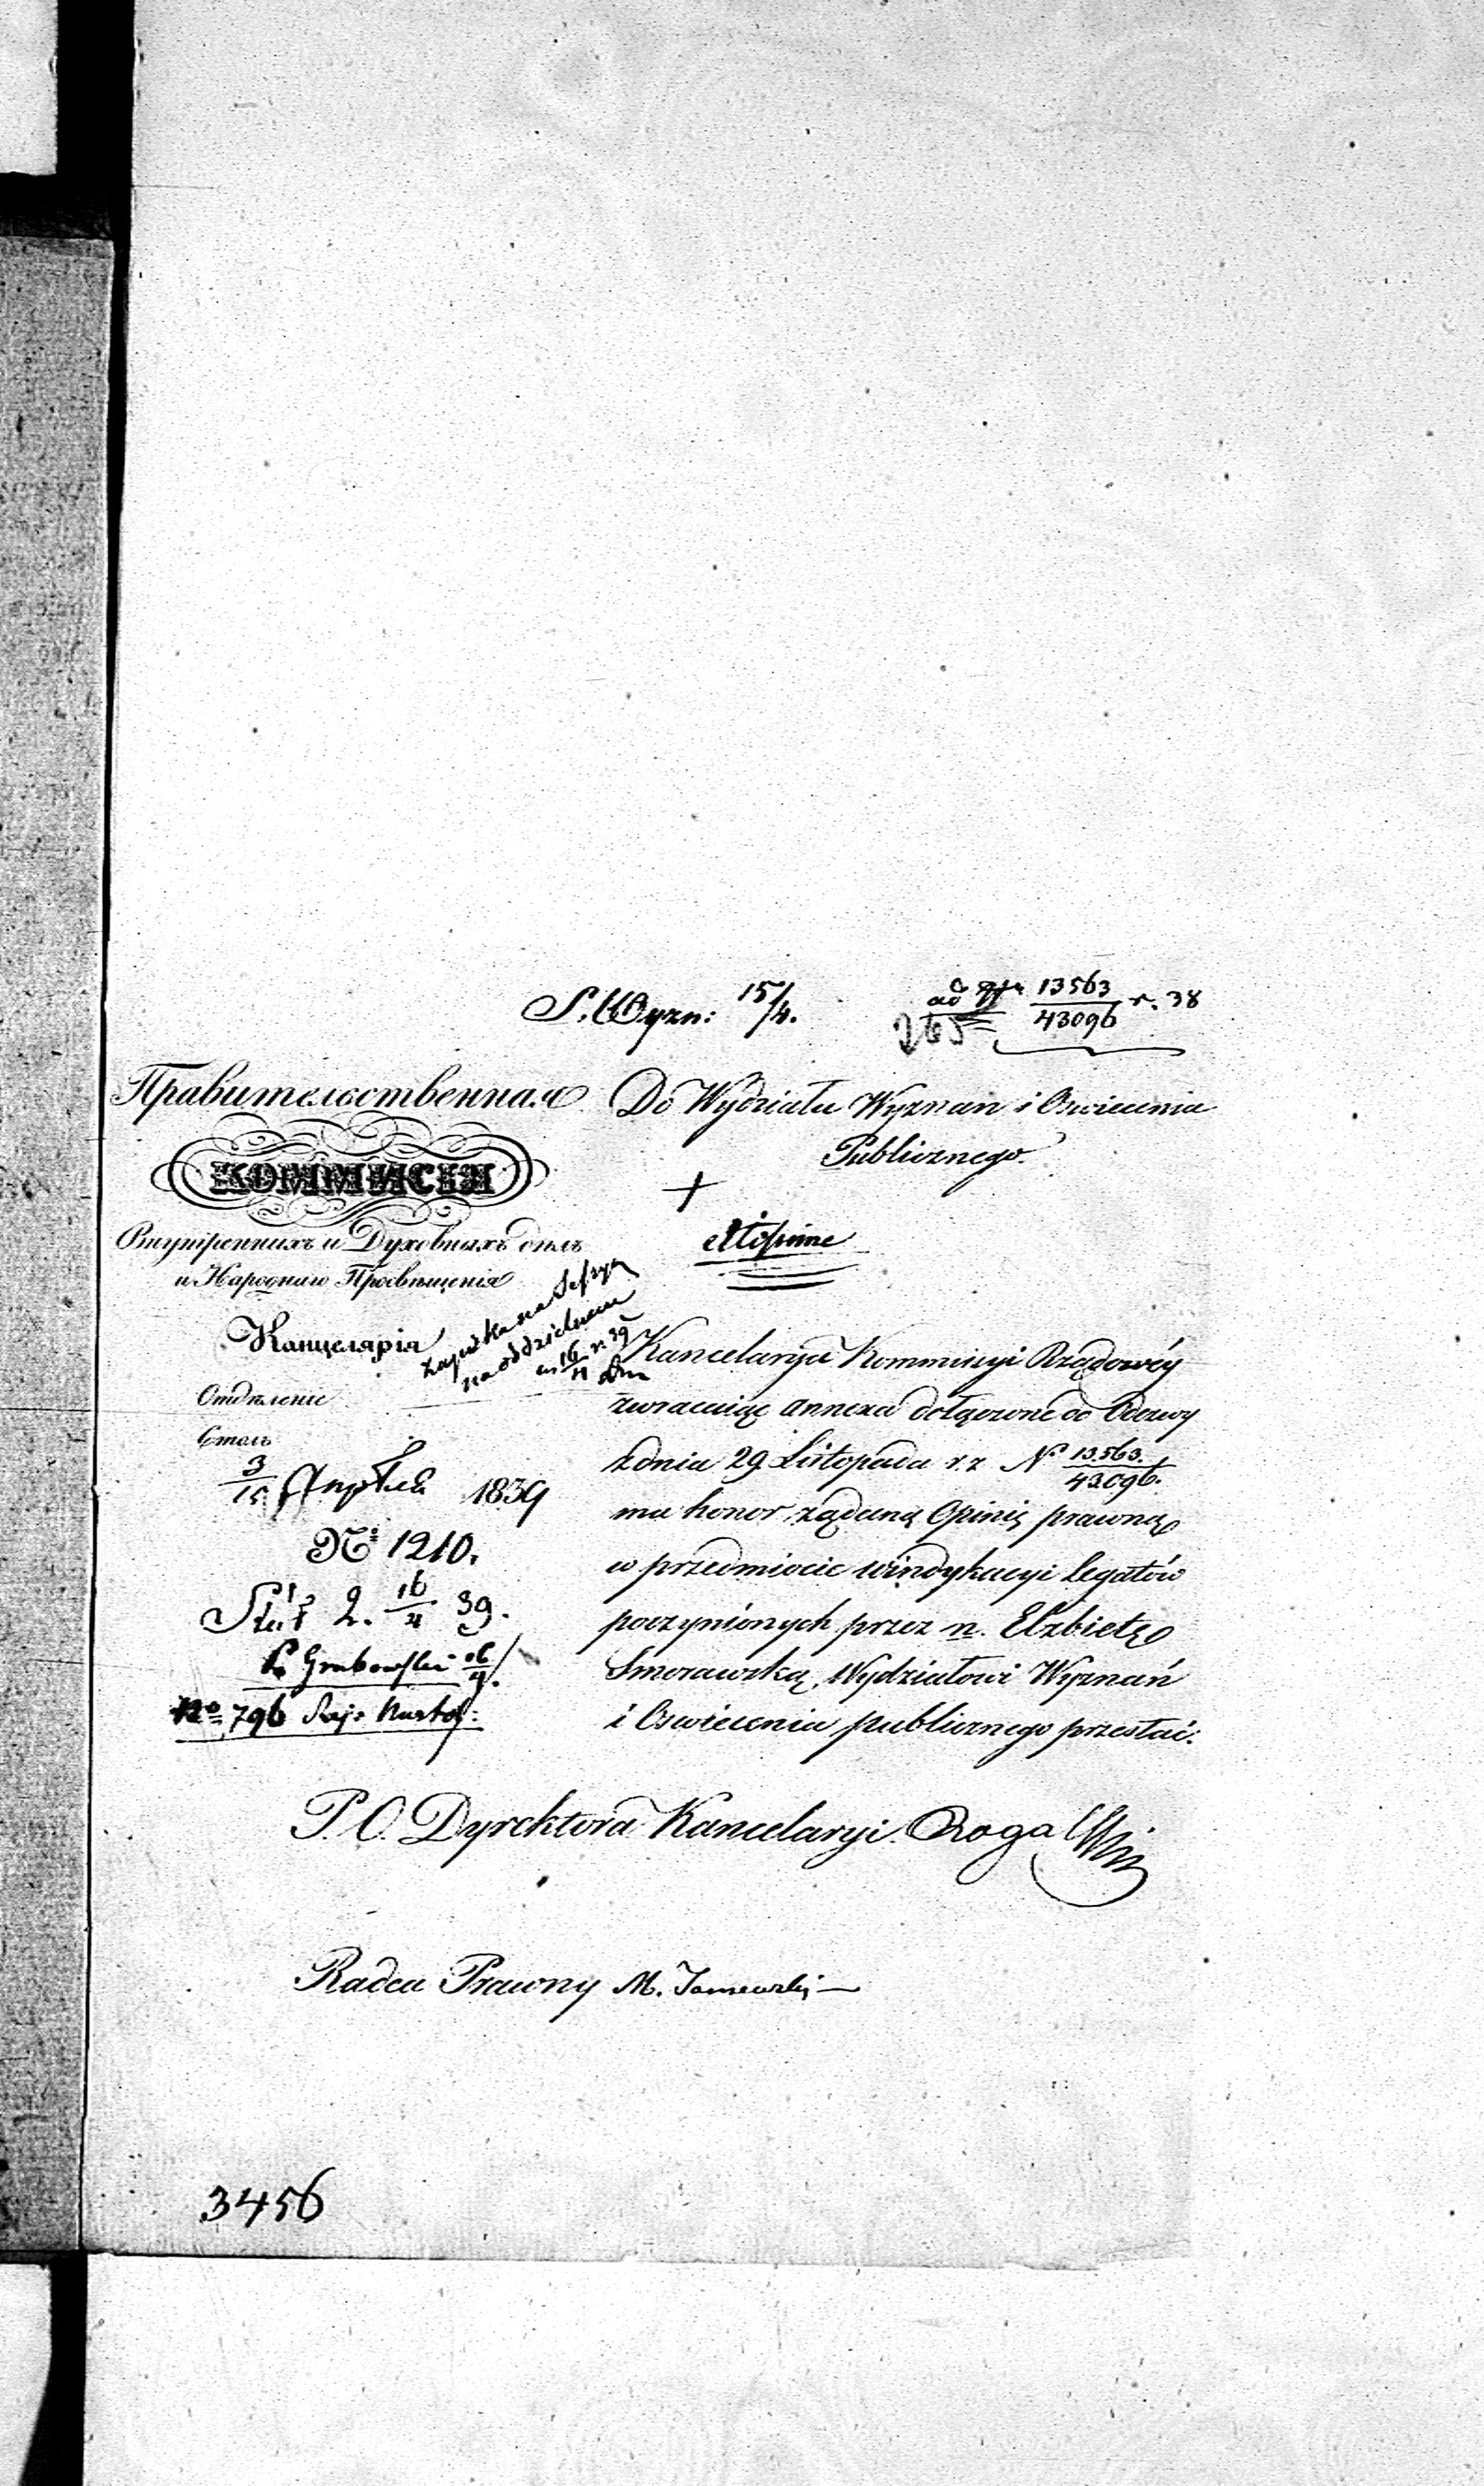 S. Wyzn: 15/4.
ad 13563/43096 r. 38
265
Правительственная
КОММИСІЯ
Внутреннихъ и Духовныхъ дѣлъ
и Народнаго Просвѣщенія
Канцелярія
Отдѣленіе
Столъ
3/15 Апрѣля 1839
№ 1210.
2. 16/4 39.
Grabowski 16/4.
No 796
Do Wydziału Wyznan i Oswiecenia
Publicznego.
na oddzielnem
16/4 r. 39
Kancelarya Kommissyi Rządowéy
zwracaiąc annexa dołączone do Odezwy
z dnia 29 Listopada r. z. No 13.563./43096.
ma honor żądaną Opinię prawną
w przedmiocie windykacyi legatów
poczynionych przez n. Elzbietę
Smorawską, Wydziałowi Wyznań
i Oswiecenia publicznego przesłać.
P. O. Dyrektora Kancelaryi. Rogalski
Radca Prawny M.
3456